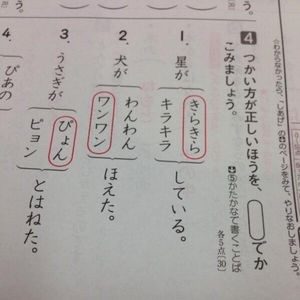 ☆わからなかったら、「しあげ」の46のページをみて、やりなおしましょう。
4 つかい方が正しいほうを、◯でか
こみましょう。
⑤かたかなで書くことば
各5点【30】
1. 星が
きらきら
キラキラ
している。
2. 犬が
わんわん
ワンワン
ほえた。
3. うさぎが
ぴょん
ピョン
とはねた。
4. ぴあの